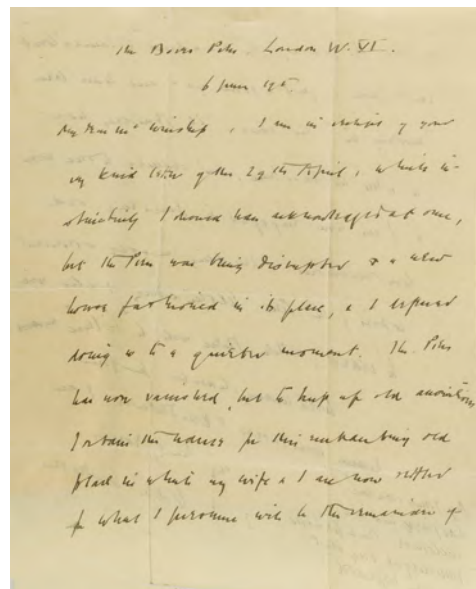 The Dover Press. London W. VI.
6 June 195
My dear Mr Winship, I am in receipt of your
very kind letter of the 29th April, which in-
stinctively I should have acknowledged at once,
but the Press was being disrupted & a new
house fashioned in its place, & I deferred
doing so to a quieter moment. The Press
has now vanished, but to keep up old associations
I retain the name for this enchanting old
place in which my wife & I are now settled
for what I presume will be the remainder of